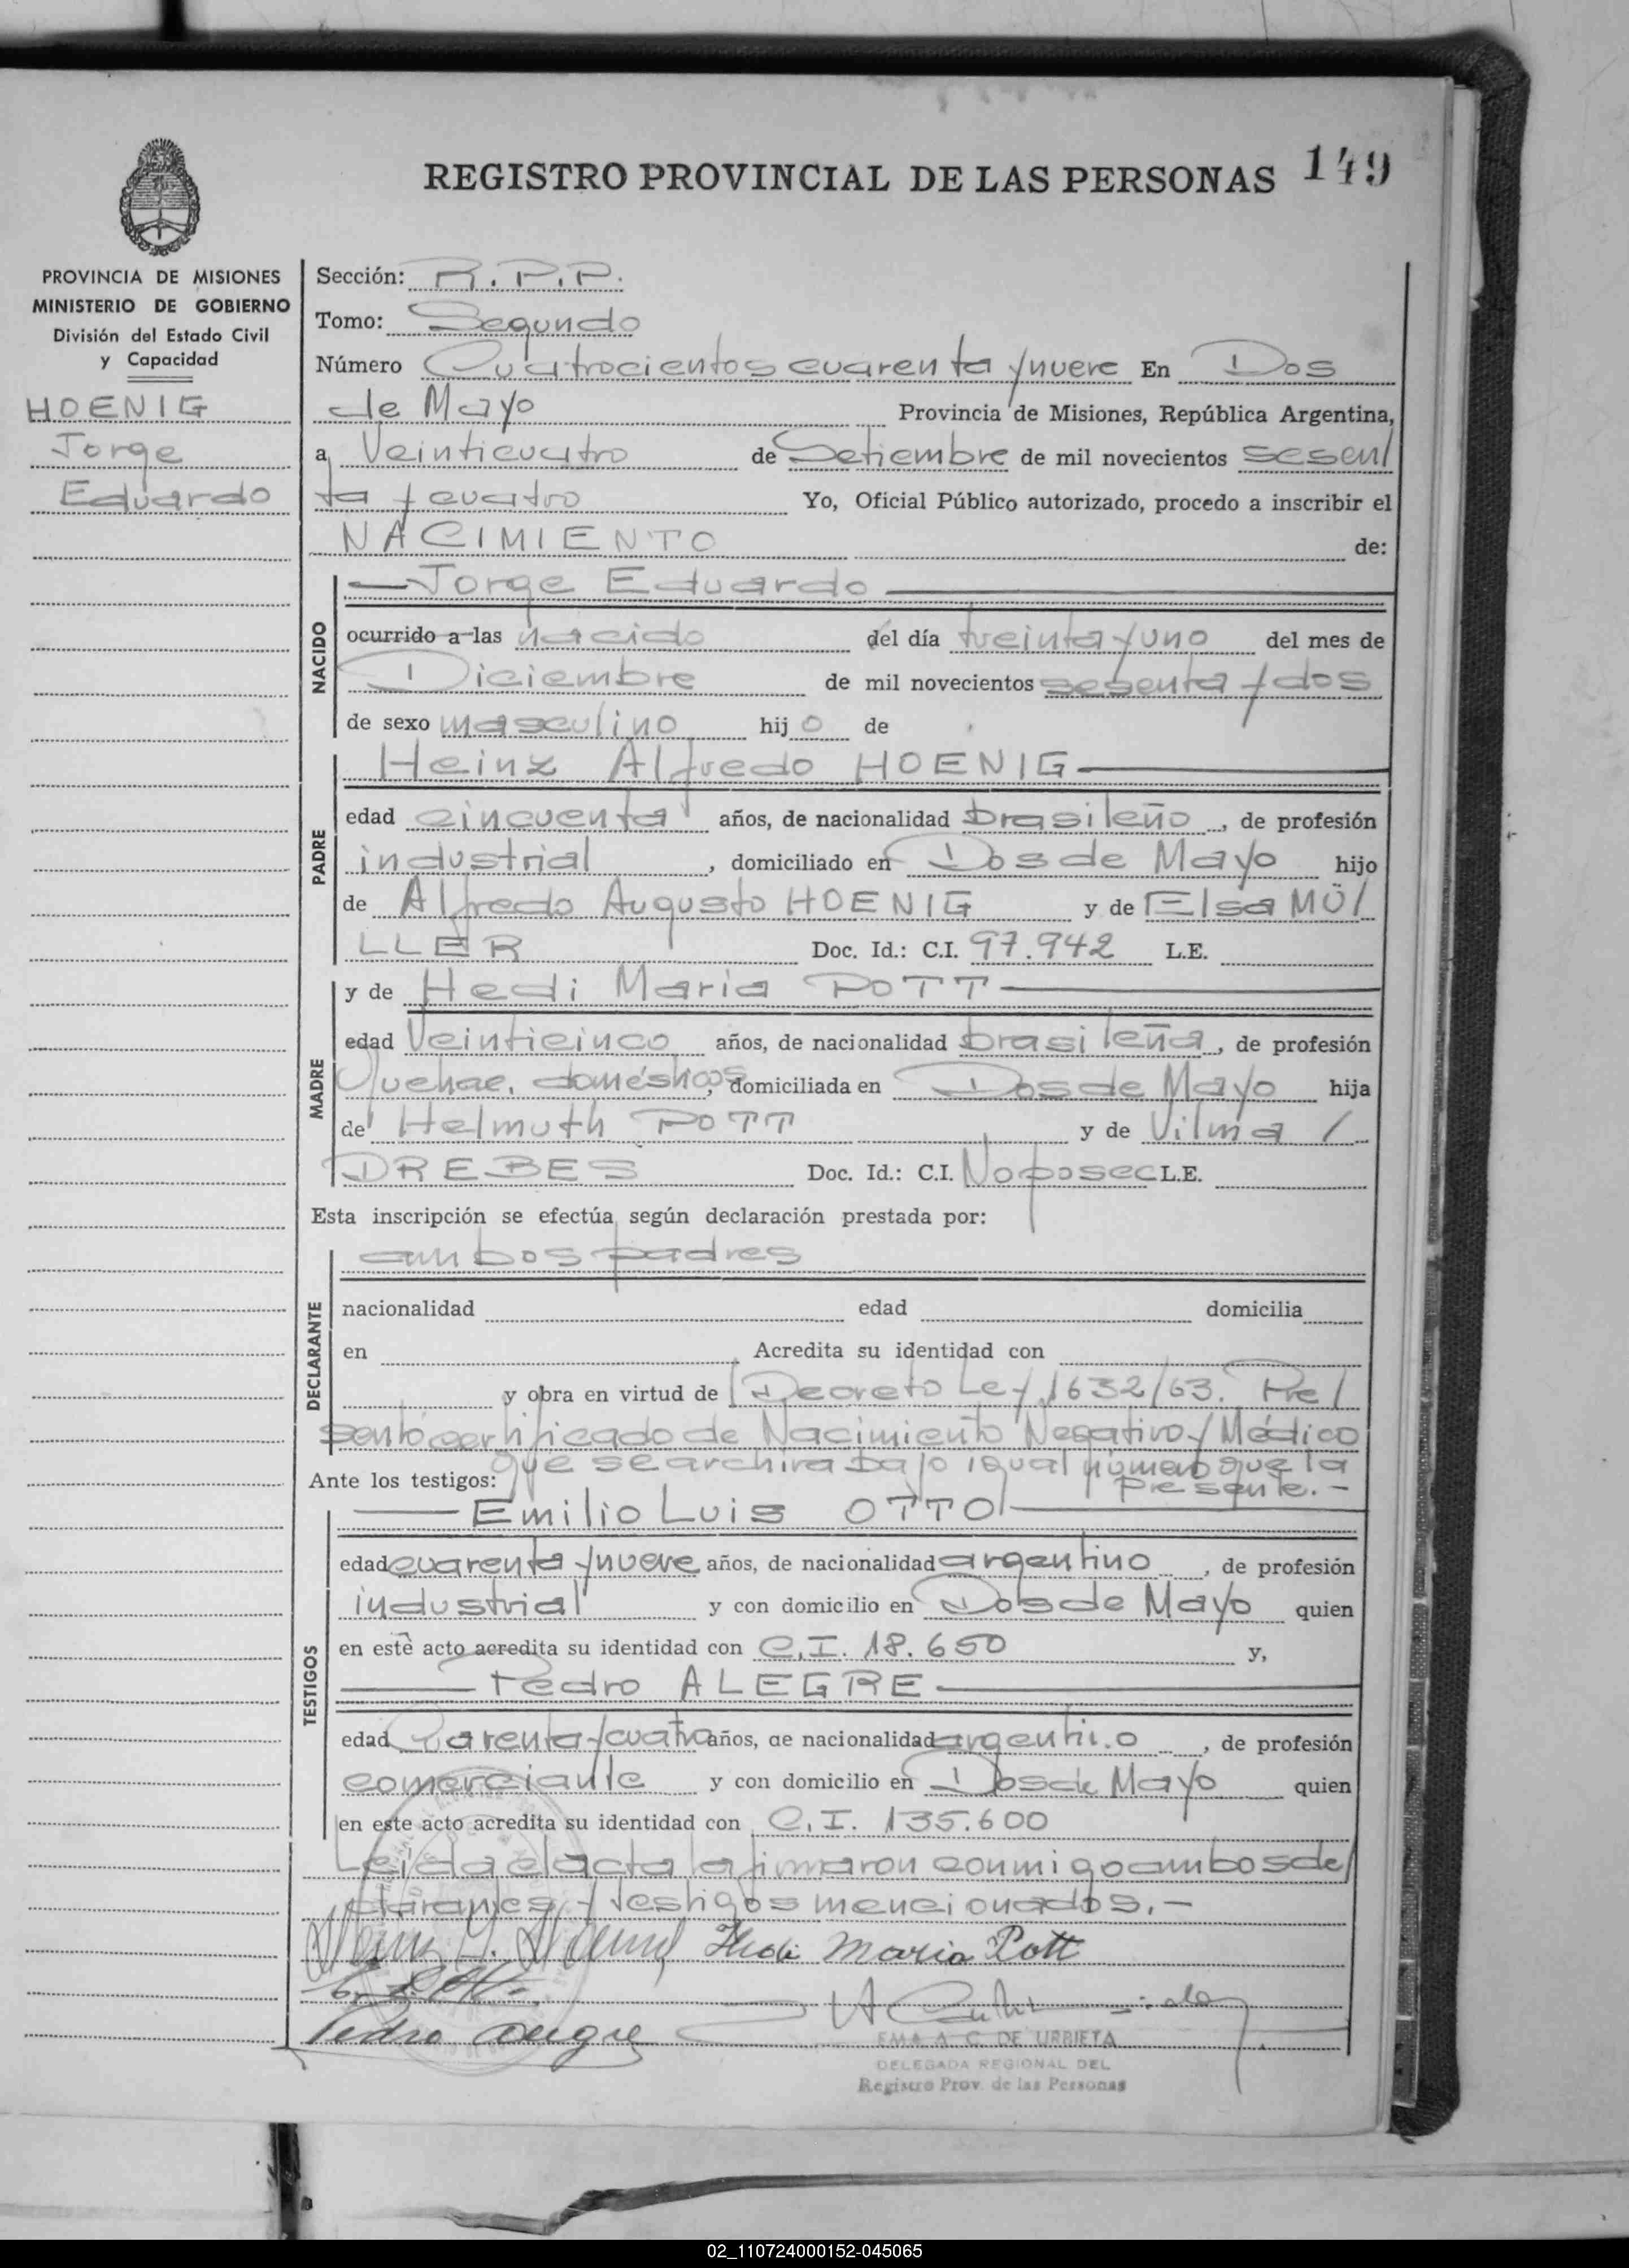 REGISTRO PROVINCIAL DE LAS PERSONAS 149
PROVINCIA DE MISIONES
MINISTERIO DE GOBIERNO
División del Estado Civil
y Capacidad
HOENIG
Jorge
Eduardo
Sección: R.P.P.
Tomo: Segundo
Número Cuatrocientos cuarenta y nueve En Dos
de Mayo Provincia de Misiones, República Argentina,
a Veinticuatro de Setiembre de mil novecientos sesen/
ta y cuatro Yo, Oficial Público autorizado, procedo a inscribir el
NACIMIENTO de:
NACIDO
Jorge Eduardo
ocurrido a las nacido del día treinta y uno del mes de
Diciembre de mil novecientos sesenta y dos
de sexo masculino hijo de
PADRE
Heinz Alfredo HOENIG
edad cincuenta años, de nacionalidad brasileño, de profesión
industrial, domiciliado en Dos de Mayo hijo
de Alfredo Augusto HOENIG y de Elsa MÜ/
LLER Doc. Id.: C.I. 97.942 L.E.
MADRE
y de Hedi Maria POTT
edad Veinticinco años, de nacionalidad brasileña, de profesión
Quehac. domésticos, domiciliada en Dos de Mayo hija
de Helmuth POTT y de Vilma /
DREBES Doc. Id.: C.I. No posee L.E.
Esta inscripción se efectúa según declaración prestada por:
DECLARANTE
ambos padres
nacionalidad edad domicilia
en Acredita su identidad con
y obra en virtud de Decreto Ley 1632/63. Pre/
sentó certificado de Nacimiento Negativo y Médico
que se archiva bajo igual número que la
presente.-
Ante los testigos:
TESTIGOS
Emilio Luis OTTO
edad cuarenta y nueve años, de nacionalidad argentino, de profesión
industrial y con domicilio en Dos de Mayo quien
en este acto acredita su identidad con C.I. 18.650 y,
Pedro ALEGRE
edad Cuarenta y cuatro años, de nacionalidad argentino, de profesión
comerciante y con domicilio en Dos de Mayo quien
en este acto acredita su identidad con C.I. 135.600
Leída el acta la firmaron conmigo ambos de/
clarantes y testigos mencionados.-
Hedi Maria Pott
Pedro Alegre
EMA A. C. DE URBIETA
DELEGADA REGIONAL DEL
Registro Prov. de las Personas
02_110724000152-045065